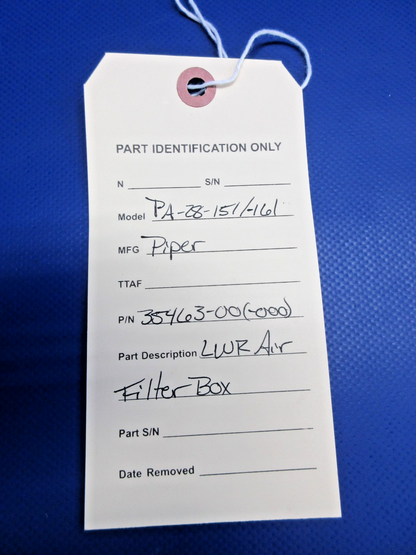 PART IDENTIFICATION ONLY
N S/N
Model PA-28-151/-161
MFG Piper
TTAF
P/N 35463-00(-000)
Part Description LWR Air
Filter Box
Part S/N
Date Removed